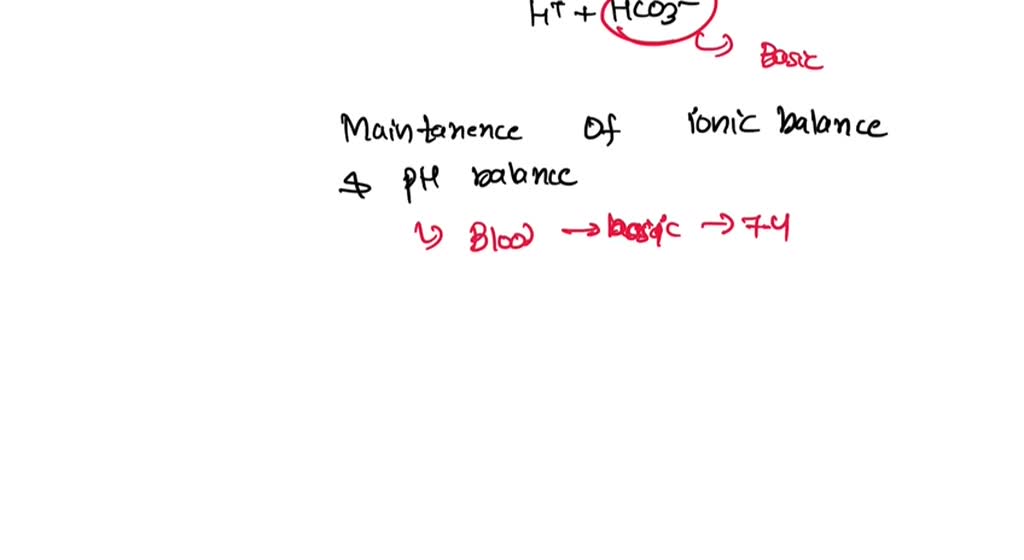 H⁺ + HCO3⁻
Basic
Maintanence Of ionic balance
& pH balance
↳ Blood → basic → 7.4